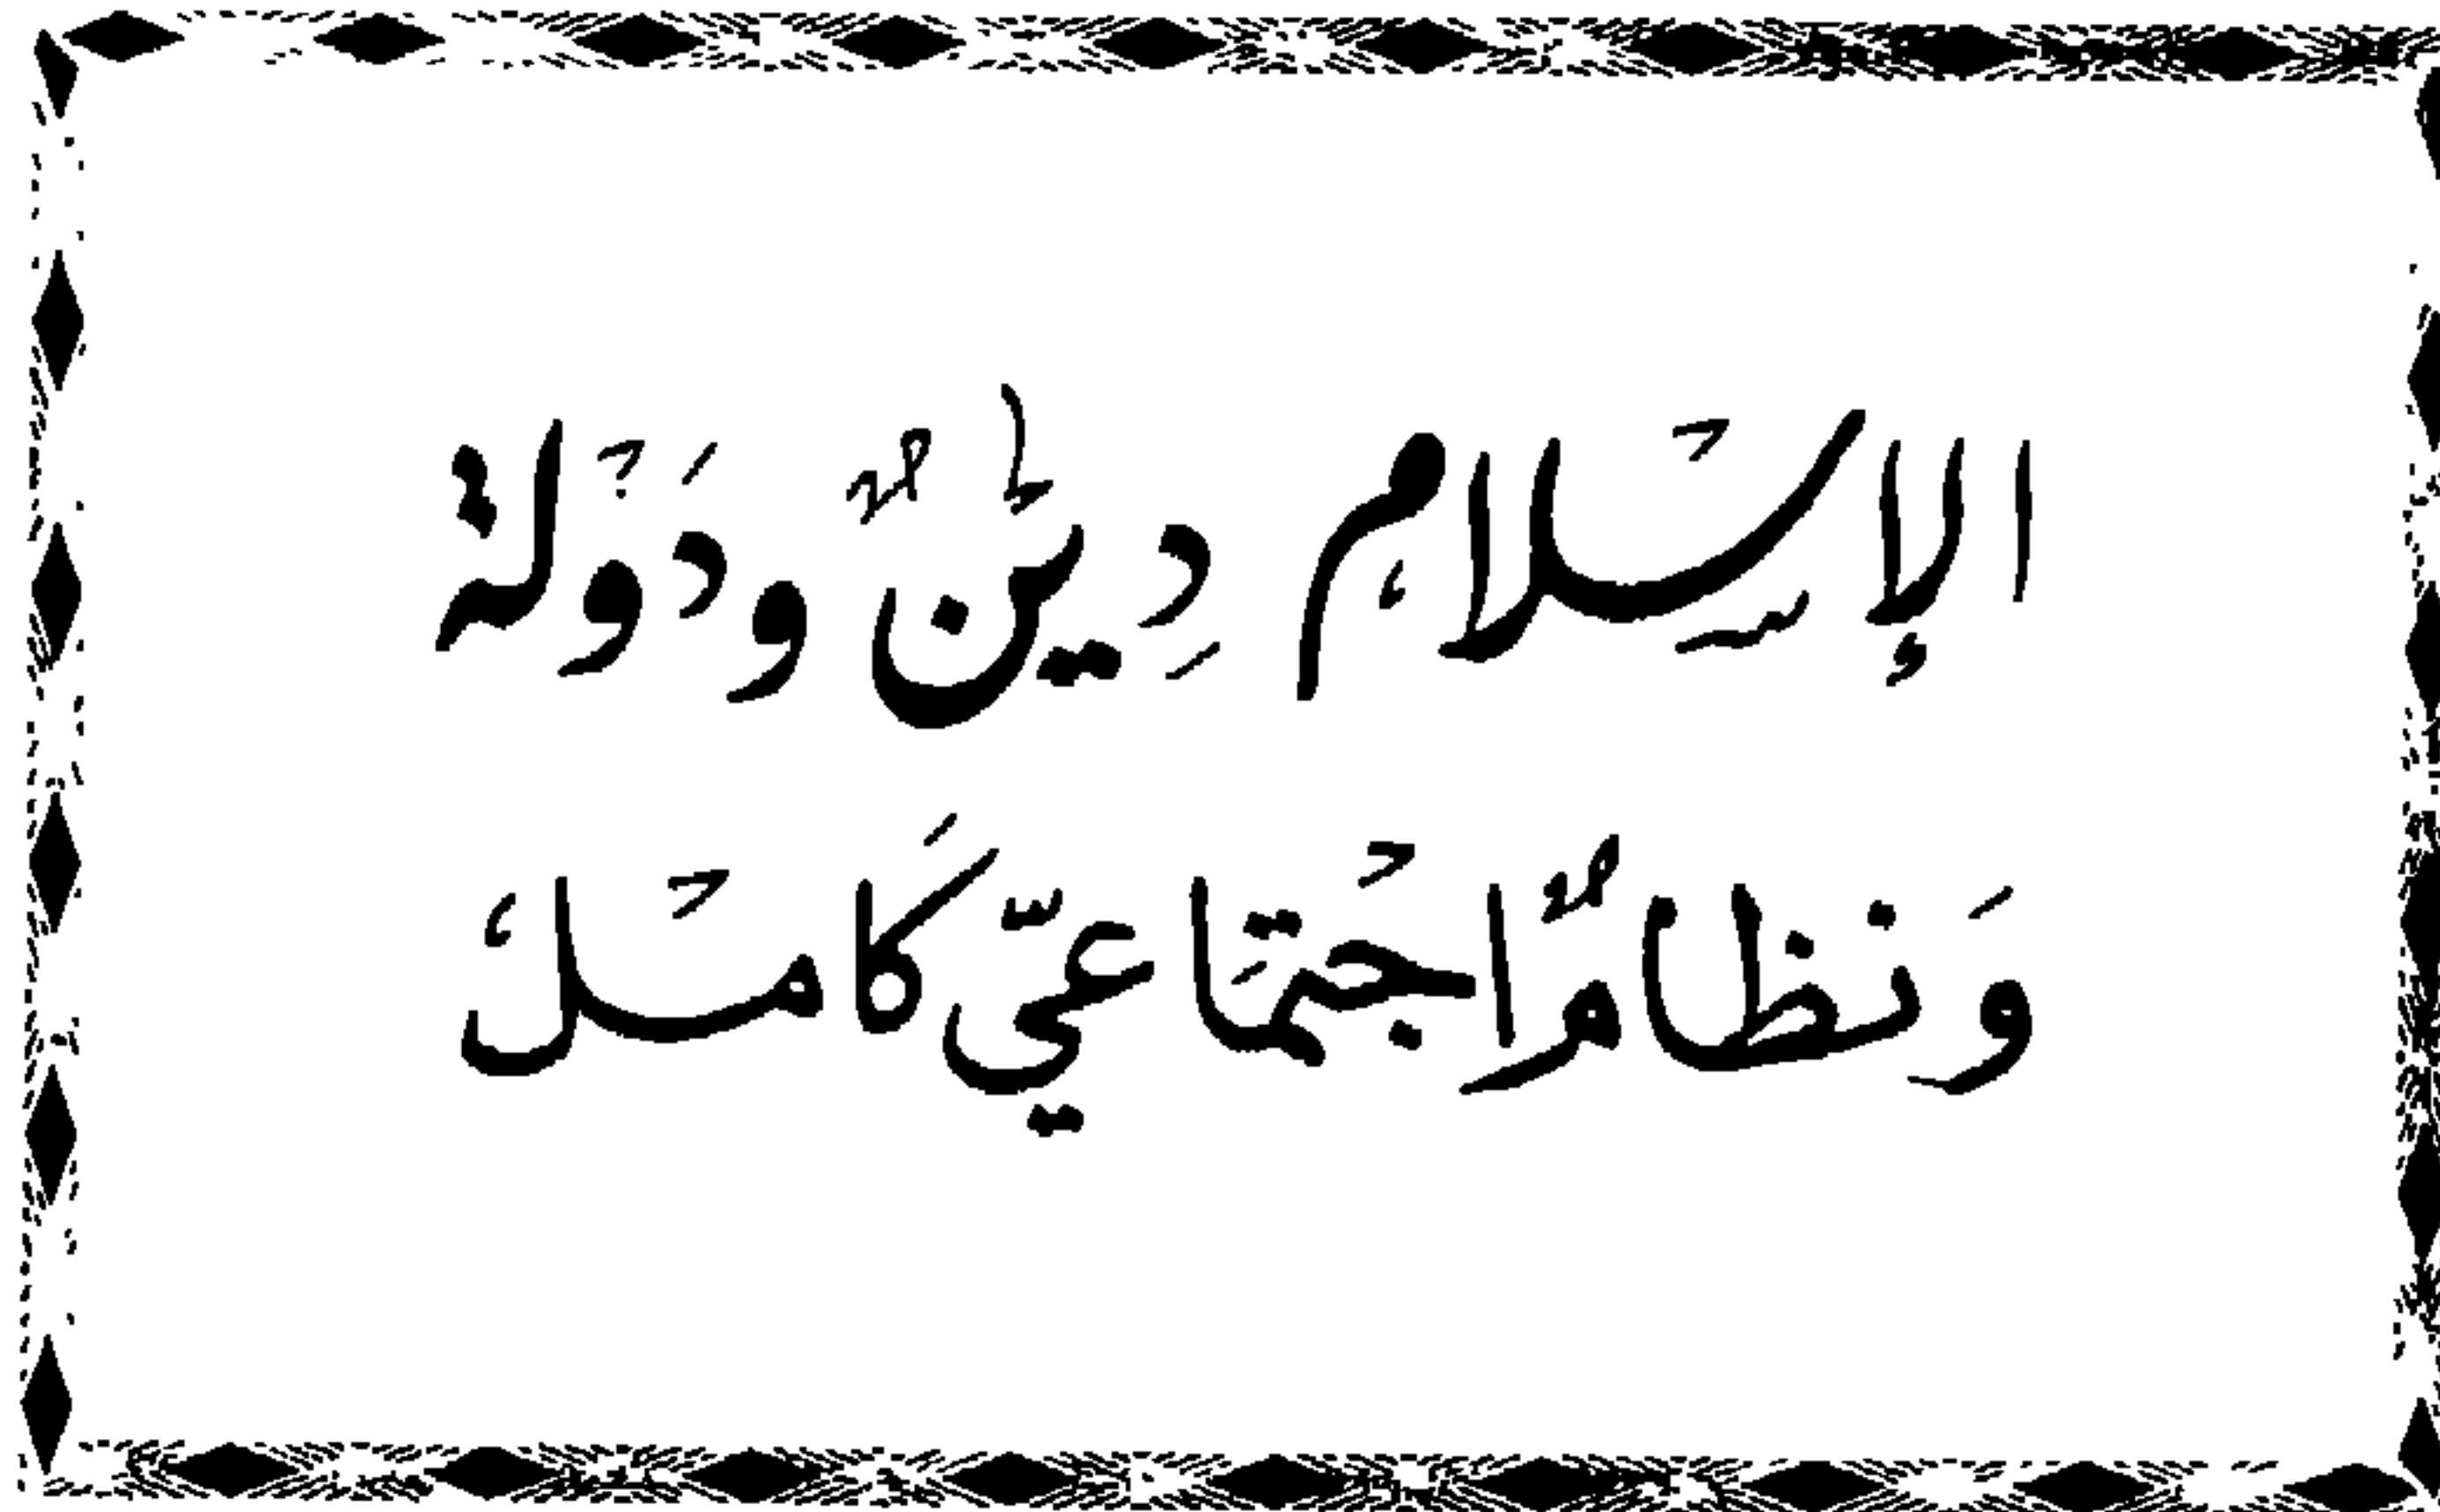 الإسلام دين ودولة
ونظام اجتماعي كامل